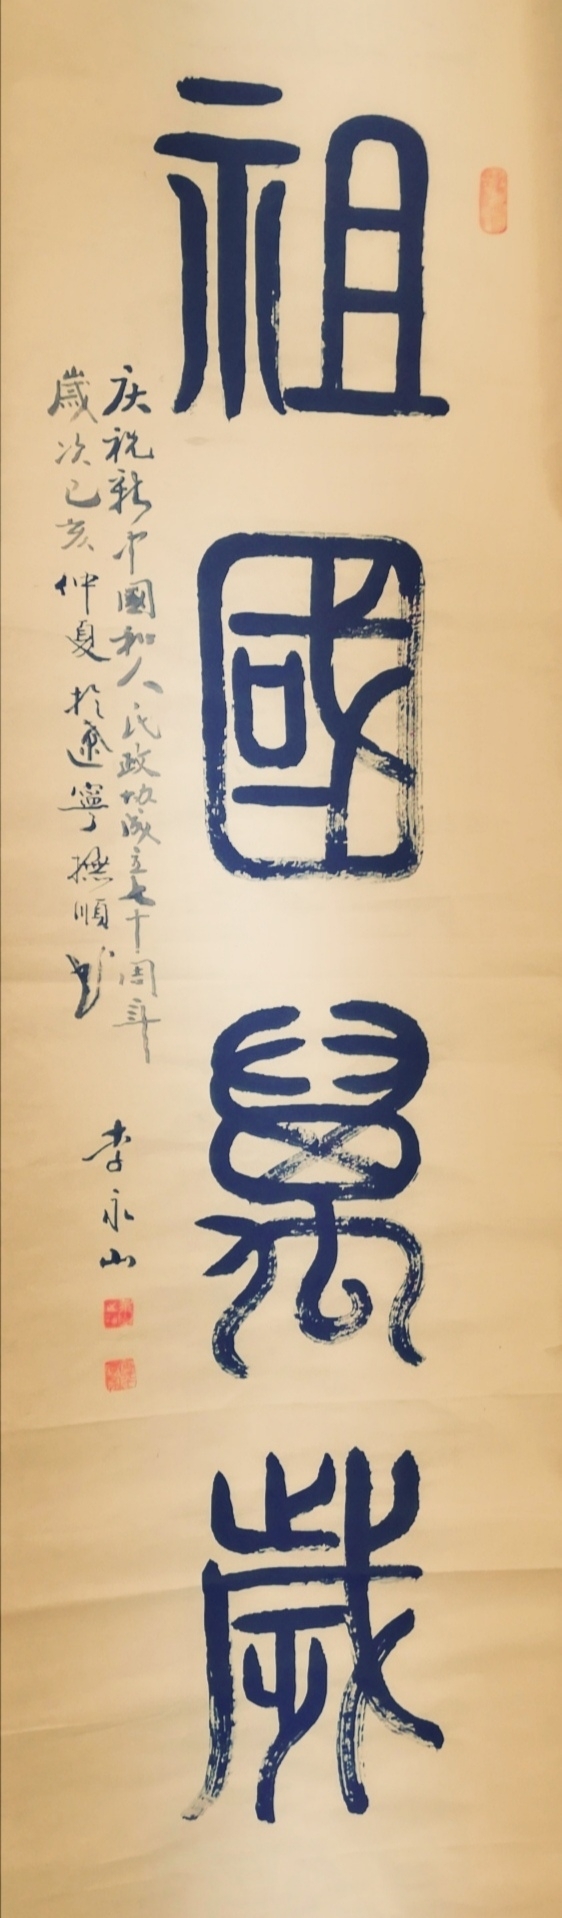 祖國萬歲
庆祝新中國和人民政协成立七十周年
歲次己亥仲夏於遼寧撫順
李永山